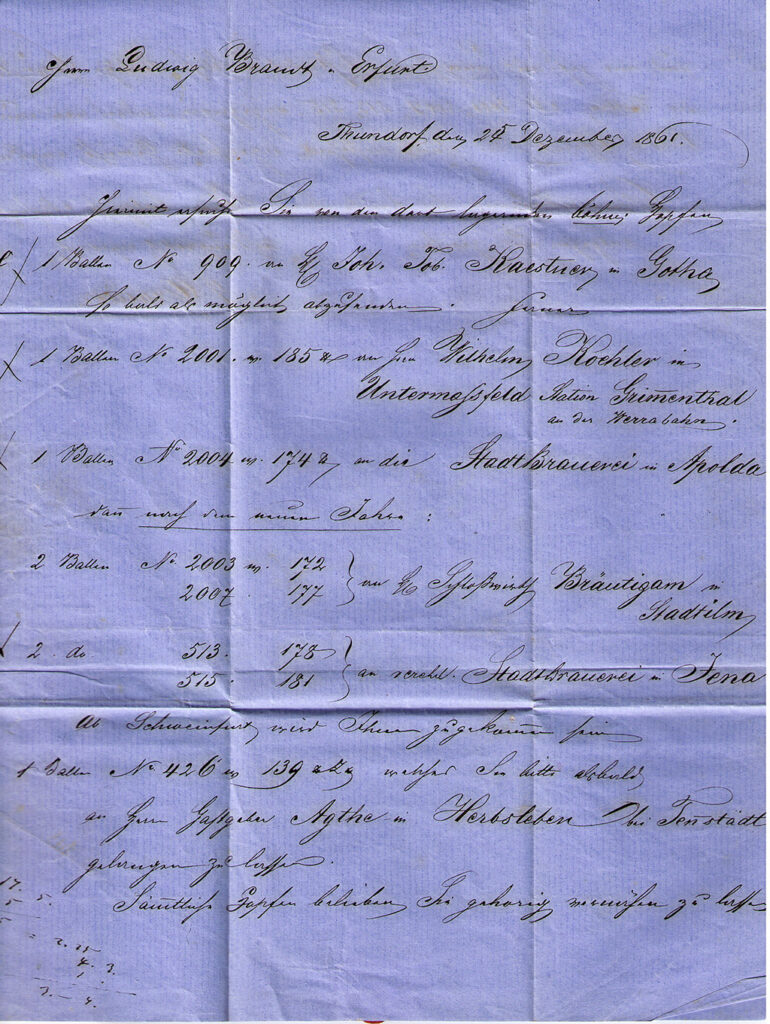 Herrn Ludwig Brandt, Erfurt
Thundorf, den 24t Dezember 1861.
Hiermit ersuche Sie von den dort lagernden böhm. Hopfen
1 Ballen No 909. an H. Joh. Tob. Kaestner, in Gotha
so bald als möglich abzusenden. ferner
1 Ballen No 2001. w. 185 ℔ an Herrn Wilhelm Kochler in
Untermassfeld Station Grimenthal
an der Werrabahn.
1 Ballen No 2004 w. 174 ℔ an die Stadtbrauerei in Apolda
dann nach dem neuen Jahre:
2 Ballen No. 2003 w. 172
2007. 177 an H. Schloßwirth Bräutigam in
Stadtilm
2 do 513. 178
515. 181 an verehrl. Stadtbrauerei in Jena
Ab Schweinfurt wird Ihnen zugekommen sein
1 Ballen No 426 w 139 welchen Sie bitte alsbald
an Herrn Gastgeber Agthe in Herbsleben bei Tennstädt
gelangen zu lassen.
Sämtliche Hopfen belieben Sie gehörig vernähen zu lassen
17. 5.
5
3. 4.